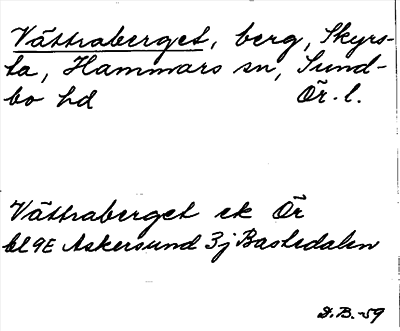 Vättraberget, berg, Skyrs-
ta, Hammars sn, Sund-
bo hd Ör. l.
Vättraberget ek Ör
bl 9E Askersund 3j Bastedalen
D.B.-59